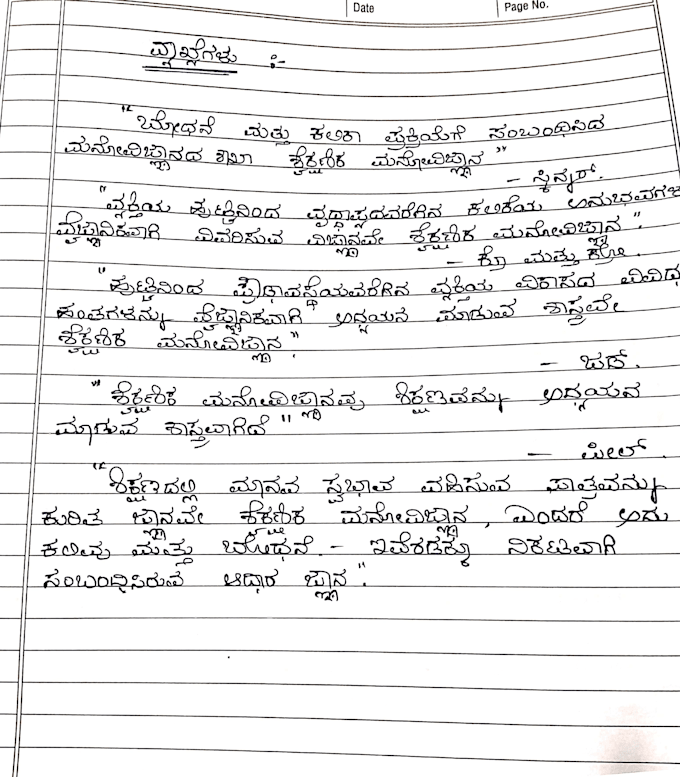 Date
Page No.
ವ್ಯಾಖ್ಯೆಗಳು :-
"ಬೋಧನೆ ಮತ್ತು ಕಲಿಕಾ ಪ್ರಕ್ರಿಯೆಗೆ ಸಂಬಂಧಿಸಿದ
ಮನೋವಿಜ್ಞಾನದ ಶಾಖೆ ಶೈಕ್ಷಣಿಕ ಮನೋವಿಜ್ಞಾನ"
– ಸ್ಕಿನ್ನರ್.
"ವ್ಯಕ್ತಿಯ ಹುಟ್ಟಿನಿಂದ ವೃದ್ಧಾಪ್ಯದವರೆಗಿನ ಕಲಿಕೆಯ ಅನುಭವಗಳ
ವೈಜ್ಞಾನಿಕವಾಗಿ ವಿವರಿಸುವ ವಿಜ್ಞಾನವೇ ಶೈಕ್ಷಣಿಕ ಮನೋವಿಜ್ಞಾನ".
– ಕ್ರೊ ಮತ್ತು ಕ್ರೋ.
"ಹುಟ್ಟಿನಿಂದ ಪ್ರೌಢಾವಸ್ಥೆಯವರೆಗಿನ ವ್ಯಕ್ತಿಯ ವಿಕಾಸದ ವಿವಿಧ
ಹಂತಗಳನ್ನು ವೈಜ್ಞಾನಿಕವಾಗಿ ಅಧ್ಯಯನ ಮಾಡುವ ಶಾಸ್ತ್ರವೇ
ಶೈಕ್ಷಣಿಕ ಮನೋವಿಜ್ಞಾನ".
– ಜಡ್.
"ಶೈಕ್ಷಣಿಕ ಮನೋವಿಜ್ಞಾನವು ಶಿಕ್ಷಣವನ್ನು ಅಧ್ಯಯನ
ಮಾಡುವ ಶಾಸ್ತ್ರವಾಗಿದೆ"
– ಪೀಲ್.
"ಶಿಕ್ಷಣದಲ್ಲಿ ಮಾನವ ಸ್ವಭಾವ ವಹಿಸುವ ಪಾತ್ರವನ್ನು
ಕುರಿತ ಜ್ಞಾನವೇ ಶೈಕ್ಷಣಿಕ ಮನೋವಿಜ್ಞಾನ, ಎಂದರೆ ಅದು
ಕಲಿವು ಮತ್ತು ಬೋಧನೆ.– ಇವೆರಡಕ್ಕೂ ನಿಕಟವಾಗಿ
ಸಂಬಂಧಿಸಿರುವ ಆಧಾರ ಜ್ಞಾನ".